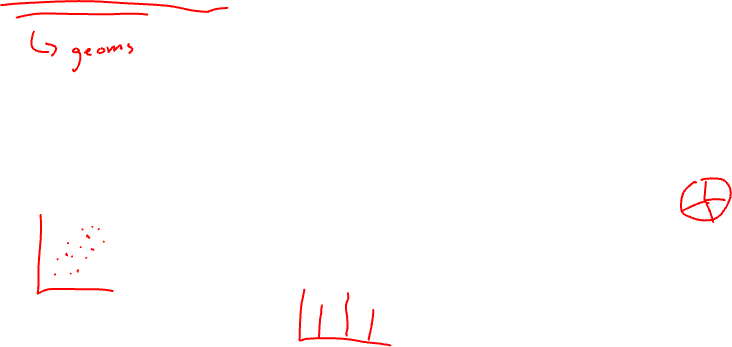 ↳ geoms